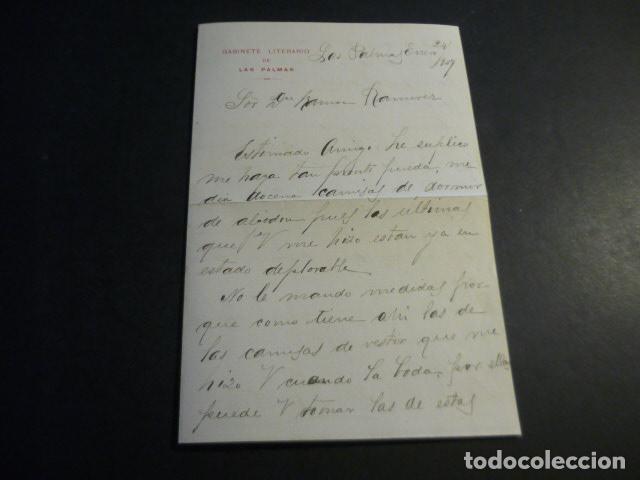 GABINETE LITERARIO
DE
LAS PALMAS
Las Palmas Enero 24/
Sor Dn Ramon Ramirez
Estimado Amigo: he suplico
me haga tan pronto pueda, me
dia docena camisas de dormir
de algodon pues las ultimas
que V me hizo estan ya en
estado deplorable.
No le mando medidas por
que como tiene ahi las de
las camisas de vestir que me
hizo V cuando la boda, por ellas
puede V tomar las de estas
todocoleccion
todocoleccion.net